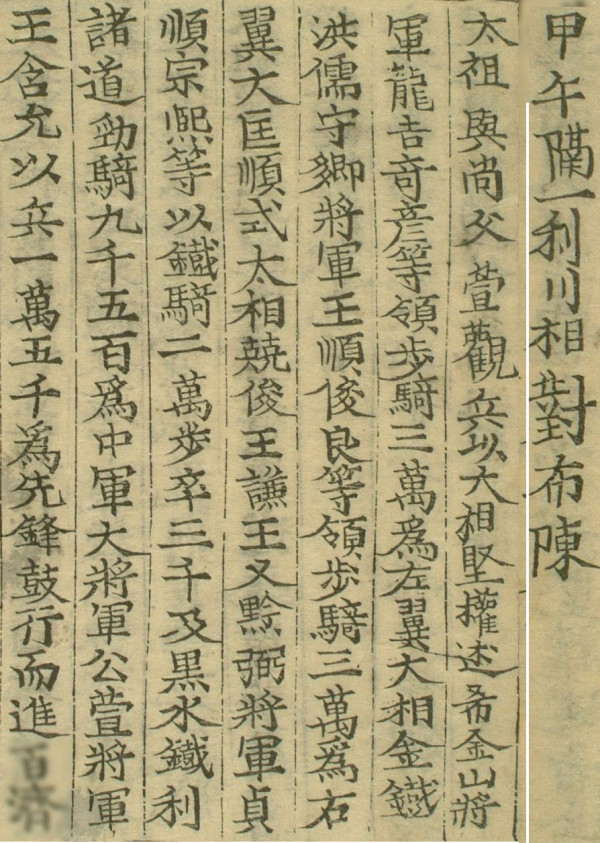 甲午隔一利川相對布陳
太祖與尚父萱觀兵以大相堅權述希金山將
軍龍吉奇彦等領歩騎三萬爲左翼大相金鐵
洪儒守鄉將軍王順俊良等領歩騎三萬爲右
翼大匡順式太相兢俊王謙王乂黔弼將軍貞
順宗熙等以鐵騎二萬步卒三千及黑水鐵利
諸道勁騎九千五百爲中軍大將軍公萱將軍
王含允以兵一萬五千爲先鋒鼓行而進